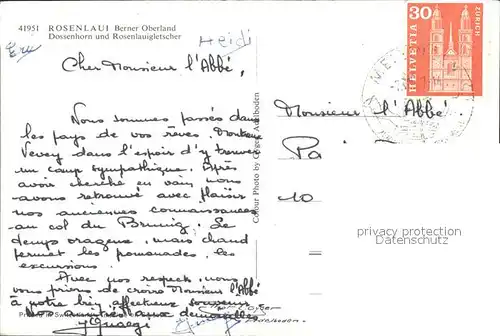 41951 ROSENLAUI Berner Oberland
Dossenhorn und Rosenlauigletscher
Heidi
Cher Monsieur l'Abbé,
Nous sommes passés dans
les pays de vos rêves. Montreux
Vevey dans l'espoir d'y trouver
un camp sympathique. Après
avoir cherché en vain nous
avons retrouvé avec plaisir
nos anciennes connaissances
au col du Brunig. Le
temps orageux, mais chaud
permet les promenades, les
excursions.
Avec nos respects nous
vous prions de croire Monsieur l'Abbé
à notre bien affectueux souvenir
aux demoiselles
Colour Photo by Gyger Adelboden
30
HELVETIA
ZÜRICH
Monsieur l'Abbé
10
privatisierte
Datenschutz
Adelboden